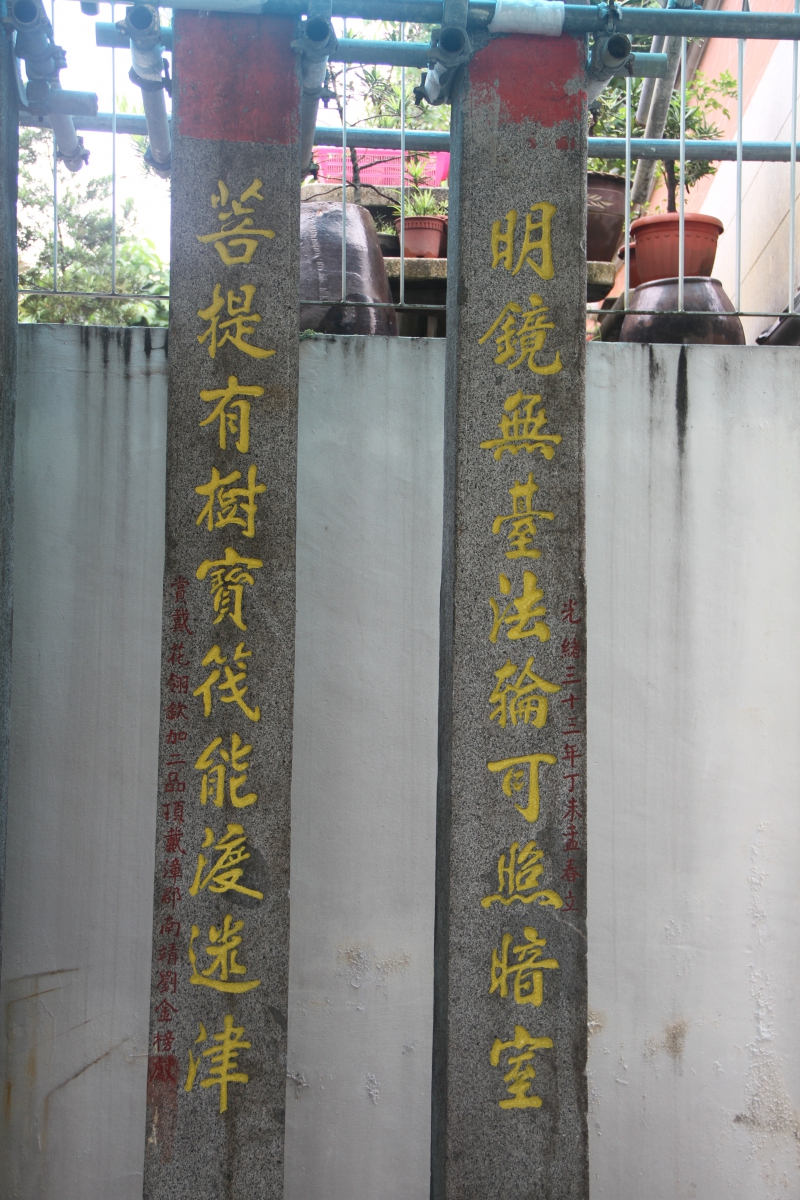 明鏡無臺法輪可照暗室
光緒三十三年丁未孟春立
菩提有樹寶筏能渡迷津
賞戴花翎欽加二品頂戴漳郡南靖劉金榜敬